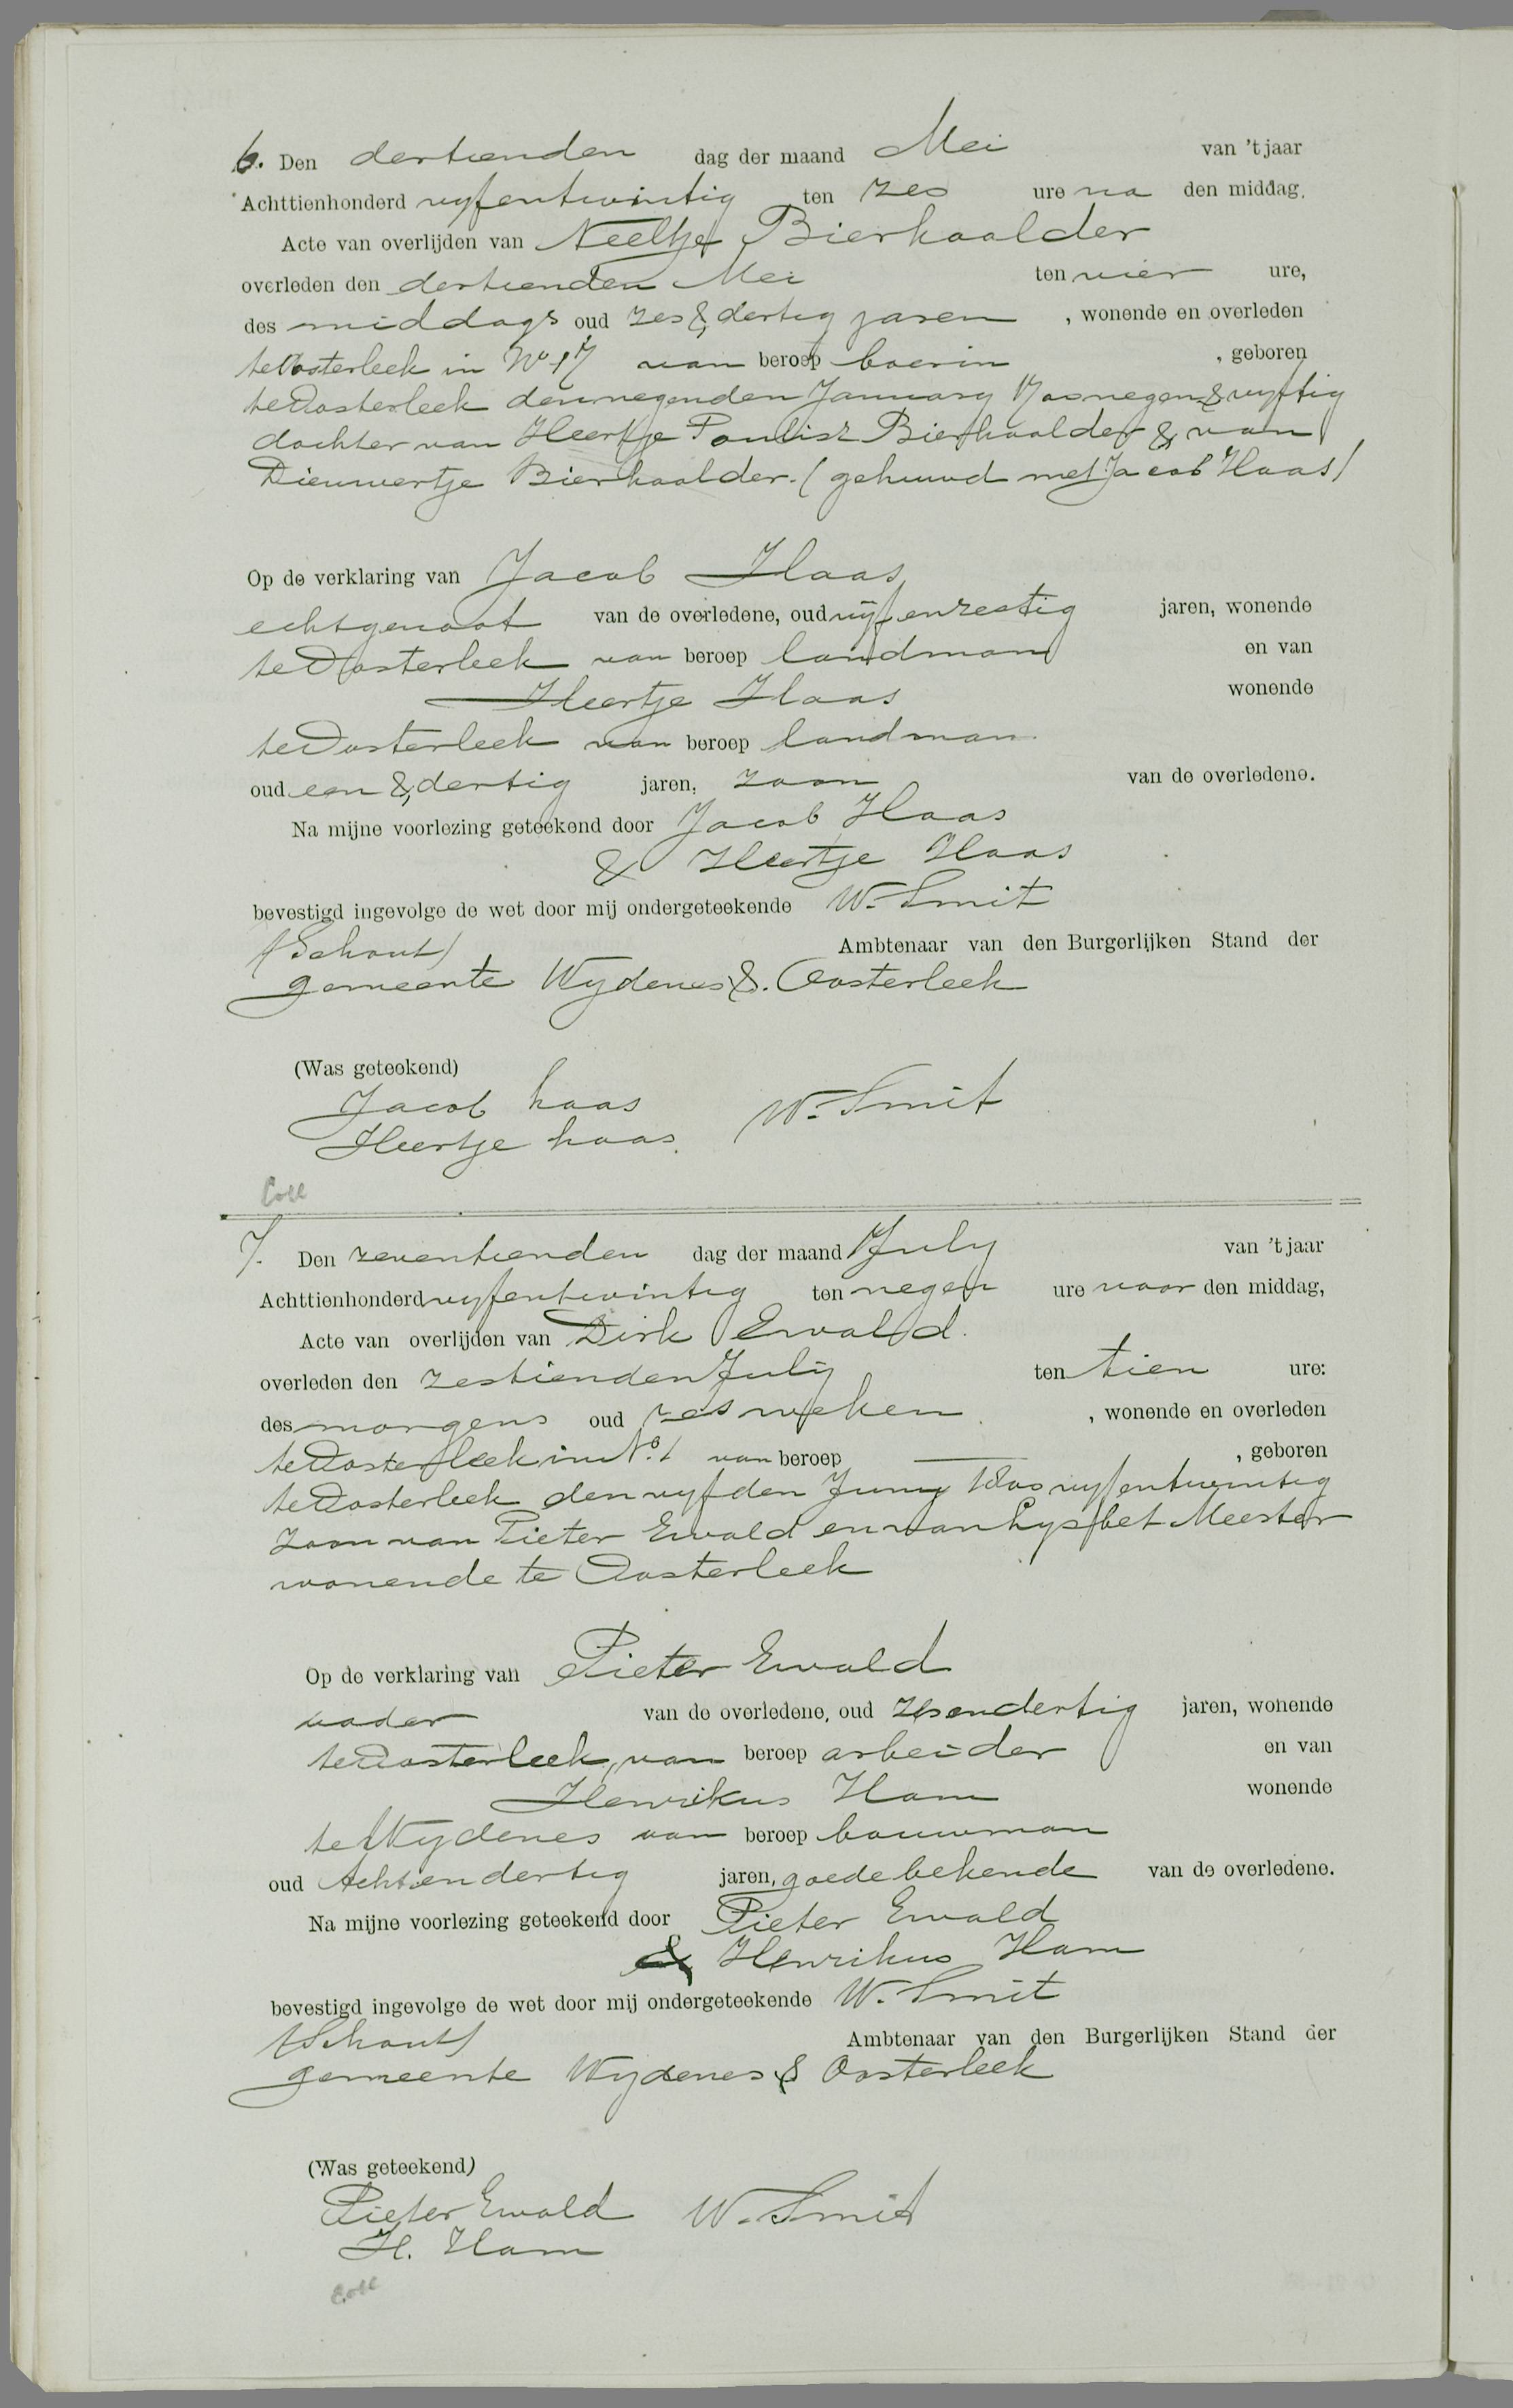 6. Den dertienden dag der maand Mei van 't jaar
Achttienhonderd vyfentwintig ten zes ure na den middag.
Acte van overlijden van Neeltje Bierhaalder
overleden den dertienden Mei ten vier ure,
des middags oud zes & dertig jaren , wonende en overleden
te Oosterleek in No 17 van beroep boerin , geboren
te Oosterleek den negenden January 17oo negen & vyftig
dochter van Heertje Paulisz Bierhaalder & van
Dieuwertje Bierhaalder. (gehuwd met Jacob Haas)
Op de verklaring van Jacob Haas
echtgenoot van de overledene, oud vijfenzestig jaren, wonende
te Oosterleek van beroep landman en van
Heertje Haas wonende
te Oosterleek van beroep landman.
oud een & dertig jaren, zoon van de overledene.
Na mijne voorlezing geteekend door Jacob Haas
& Heertje Haas
bevestigd ingevolge de wet door mij ondergeteekende W. Smit
(Schout) Ambtenaar van den Burgerlijken Stand der
gemeente Wydenes & Oosterleek
(Was geteekend)
Jacob haas W. Smit
Heertje haas.
Coll
7. Den zeventienden dag der maand July van 't jaar
Achttienhonderd vyfentwintig ten negen ure voor den middag,
Acte van overlijden van Dirk Ewald.
overleden den zestienden July ten tien ure:
des morgens oud zes weken , wonende en overleden
te Oosterleek in No. 1 van beroep , geboren
te Oosterleek den vyfden Juny 18oo vyfentwintig
zoon van Pieter Ewald en van Lysbet Meester
wonende te Oosterleek
Op de verklaring van Pieter Ewald
vader van de overledene, oud zesendertig jaren, wonende
te Oosterleek, van beroep arbeider en van
Henrikus Ham wonende
te Wydenes van beroep bouwman
oud Achtendertig jaren, goede bekende van de overledene.
Na mijne voorlezing geteekend door Pieter Ewald
& Henrikus Ham
bevestigd ingevolge de wet door mij ondergeteekende W. Smit
(Schout) Ambtenaar van den Burgerlijken Stand der
gemeente Wydenes & Oosterleek
(Was geteekend)
Pieter Ewald W. Smit
H. Ham
Coll